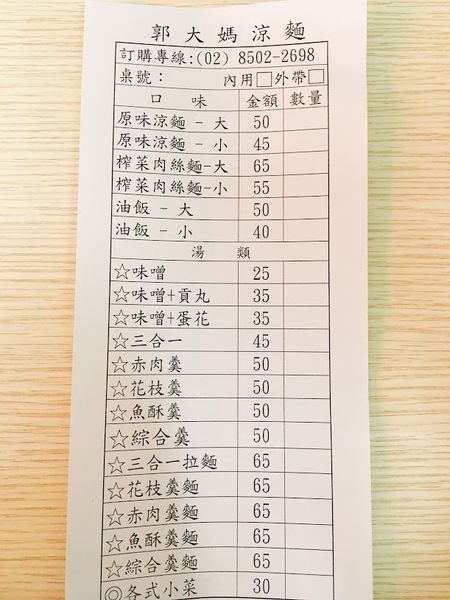 郭大媽涼麵
訂購專線:(02) 8502-2698
桌號： 內用□外帶□
口 味 金額 數量
原味涼麵 - 大 50
原味涼麵 - 小 45
榨菜肉絲麵-大 65
榨菜肉絲麵-小 55
油飯 - 大 50
油飯 - 小 40
湯 類
☆味噌 25
☆味噌+貢丸 35
☆味噌+蛋花 35
☆三合一 45
☆赤肉羹 50
☆花枝羹 50
☆魚酥羹 50
☆綜合羹 50
☆三合一拉麵 65
☆花枝羹麵 65
☆赤肉羹麵 65
☆魚酥羹麵 65
☆綜合羹麵 65
◎各式小菜 30